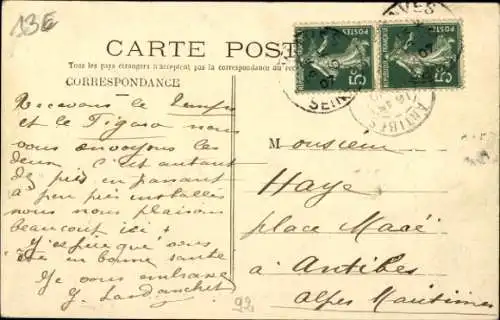 13E
CARTE POSTALE
Tous les pays étrangers n'acceptent pas la correspondance au recto
CORRESPONDANCE
Recevons le Temps
et le Figaro nous
vous envoyons les
deux c'est autant
de pris en passant
à peu près installés
nous nous plaisons
beaucoup ici +
J'espère que vous
êtes en bonne santé
Je vous embrasse
Monsieur
Haye
place Macé
à Antibes
Alpes Maritimes
92
POSTES
5
POSTES
5
VANVES
SEINE
ANTIBES